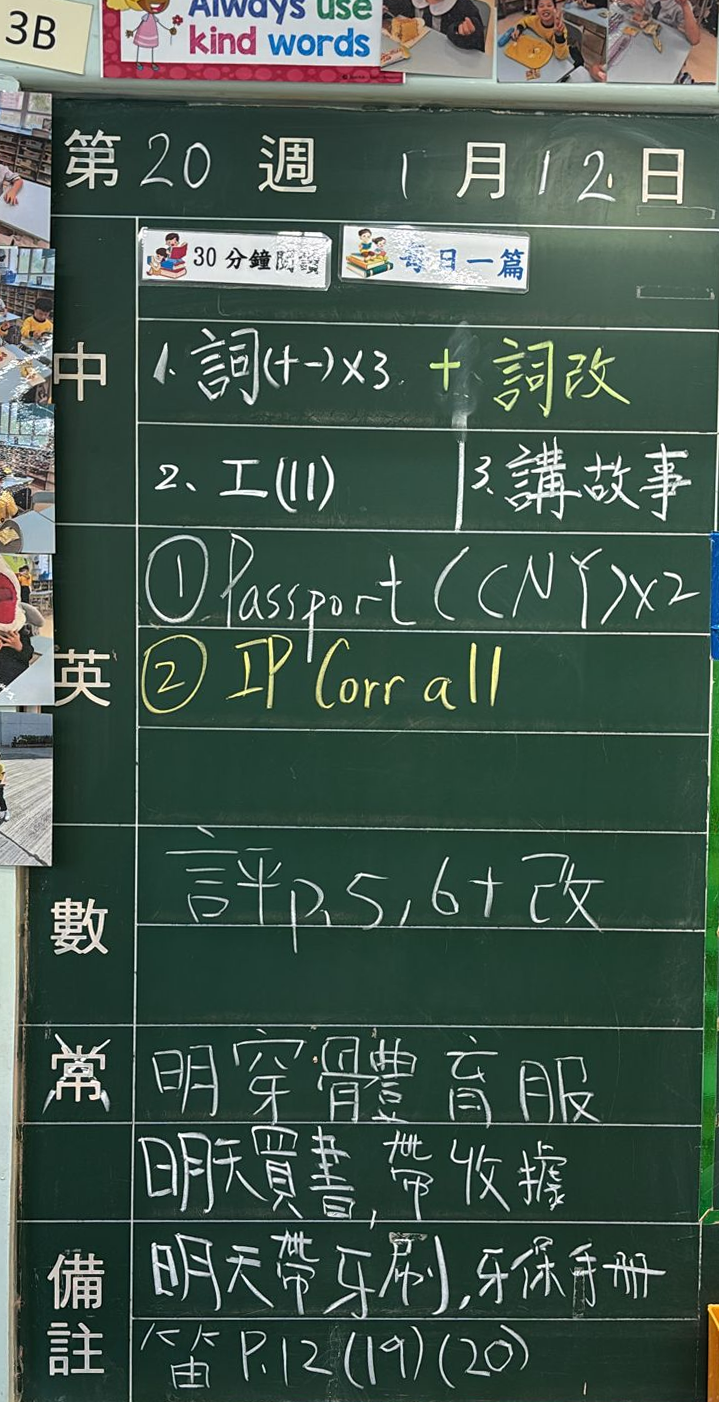 3B
Always use
kind words
第20週 1月12日
30分鐘閱讀 每日一篇
中 1. 詞(十一)x3. + 詞改
2、工(11) 3、講故事
英 ① Passport (CNY)x2
② IP Corr all
數 評p.5,6+改
常 明穿體育服
明天買書,帶收據
備註 明天帶牙刷,牙保手冊
笛 P.12(19)(20)